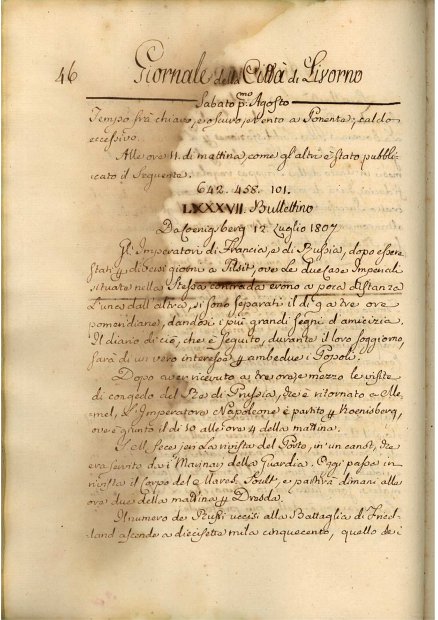 46 Giornale della Città di Livorno
Sabato p.mo Agosto
Tempo frà chiaro, e oscuro, vento a Ponente, caldo
eccessivo.
Alle ore 11. di mattina, come gl'altri è stato pubbli-
cato il seguente.
642. 458. 101.
LXXXVII. Bullettino
Da Coenigsberg 12 Luglio 1807
Gl'Imperatori di Francia, e di Russia, dopo essere
stati p di Giorni a Tilsit, ove Le due Case Imperiali
situate nella stessa contrada erono a poca distanza
L'una dall'altra, si sono separati il dì 9 a tre ore
pomeridiane, dandosi i più grandi segni d'amicizia.
Il diario di ciò, che è seguito, durante il loro soggiorno,
sarà di un vero interesse p ambedue i Popoli.
Dopo aver ricevuto a tre ore e mezzo la visita
di congedo del Rè di Prussia, che è ritornato a Me-
mel, L'Imperatore Napoleone è partito p Koenisberg,
ove è giunto il dì 10 alle ore 4 della mattina.
Ieri fece la rivista del Porto, in un canot, che
era servito da i Marinari della Guardia. Oggi passa in
rivista il Corpo del Mares. Soult, e partirà dimani alle
ore due della mattina p Dresda.
Il numero de Russi uccisi alla Battaglia di Fried-
land ascende a diecisette mila cinquecento, quello dei